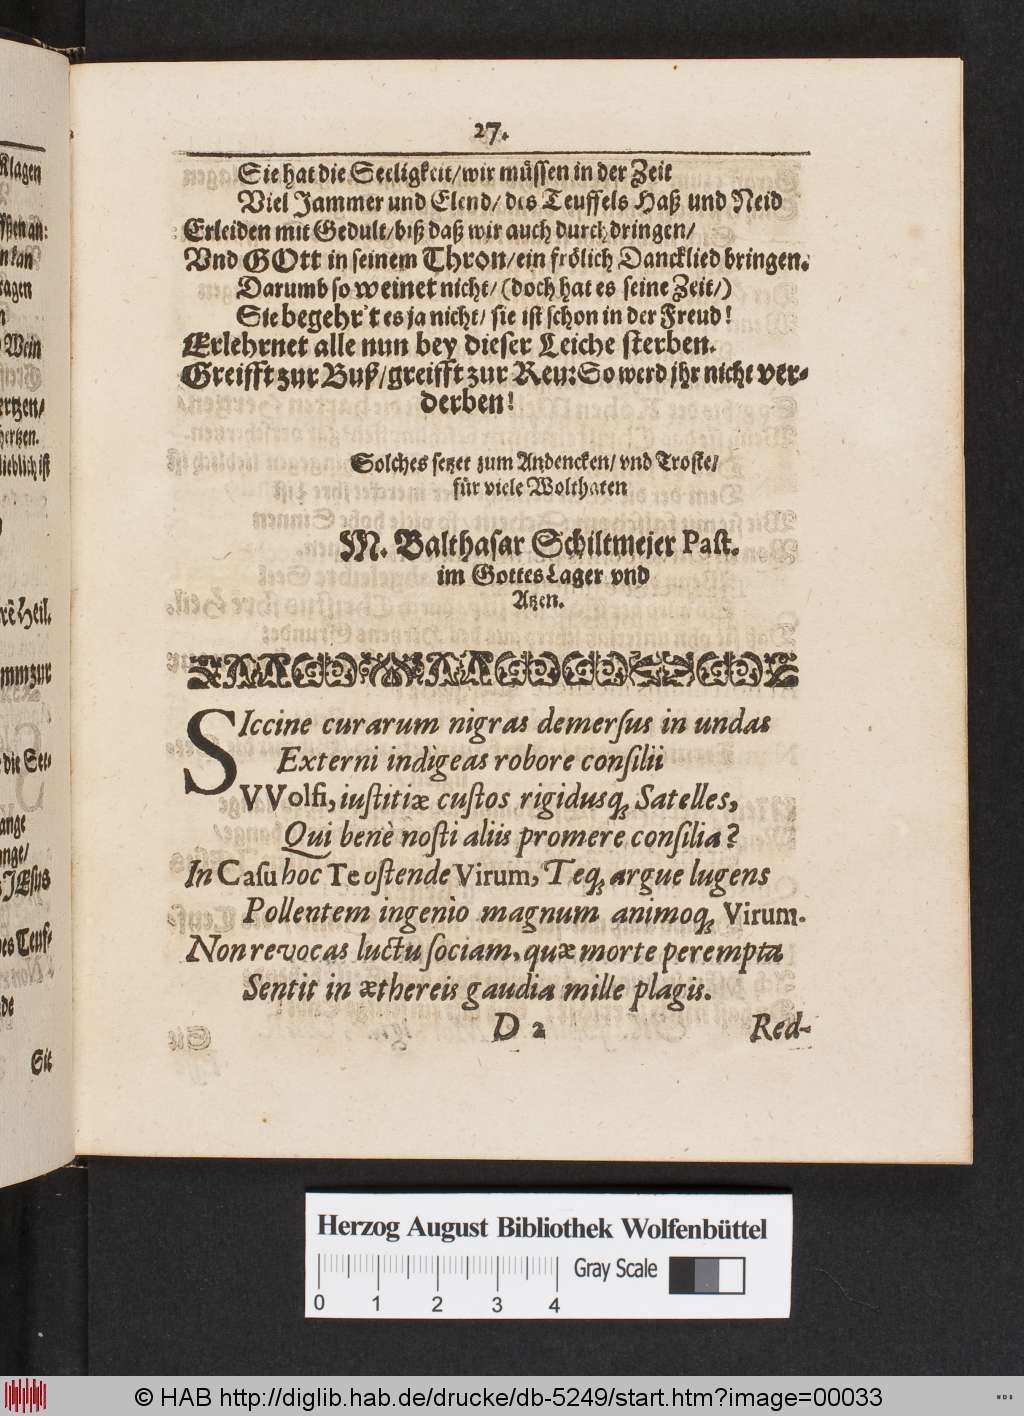 Klagen
ssen an:
n kan
ragen
n
Wein
ertzen/
hertzen.
lieblich ist
rē Heil.
mm zur
die See-
ange
ange/
JEsus
des Teuf-
de
Sie
27.
Sie hat die Seeligkeit/wir müssen in der Zeit
Viel Jammer und Elend/ des Teuffels Haß und Neid
Erleiden mit Gedult/biß daß wir auch durch dringen/
Vnd GOtt in seinem Thron/ein frölich Dancklied bringen.
Darumb so weinet nicht/ (doch hat es seine Zeit/)
Sie begehr't es ja nicht/ sie ist schon in der Freud!
Erlehrnet alle nun bey dieser Leiche sterben.
Greifft zur Buß/greifft zur Reu: So werd jhr nicht ver-
derben!
Solches setzet zum Andencken/ vnd Troste/
für viele Wolthaten
M. Balthasar Schiltmejer Past.
im Gottes Lager vnd
Atzen.
SIccine curarum nigras demerſus in undas
Externi indìgeas robore conſilii
VVolfi, iuſtitiæ cuſtos rigidusq́; Satelles,
Qui benè noſti aliis promere conſilia?
In Caſu hoc Te oſtende Virum, Teq́; argue lugens
Pollentem ingenio magnum animoq́; Virum.
Non revocas luctu ſociam, quæ morte perempta
Sentit in æthereis gaudia mille plagis.
D 2
Red-
Herzog August Bibliothek Wolfenbüttel
Gray Scale
0 1 2 3 4
© HAB http://diglib.hab.de/drucke/db-5249/start.htm?image=00033